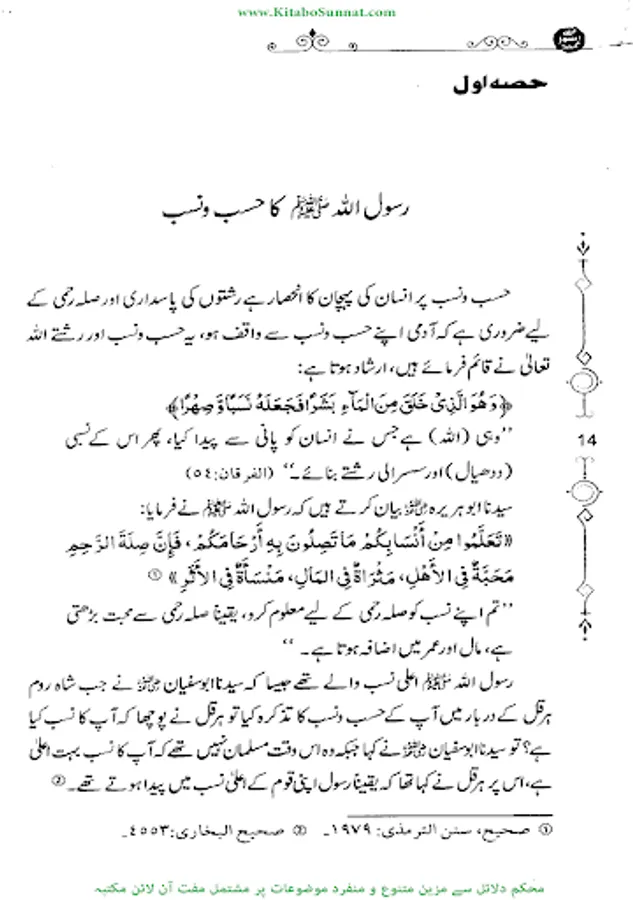 www.KitaboSunnat.com
حصہ اول
رسول اللہ ﷺ کا حسب ونسب
حسب ونسب پر انسان کی پہچان کا انحصار ہے رشتوں کی پاسداری اور صلہ رحمی کے
لیے ضروری ہے کہ آدمی اپنے حسب ونسب سے واقف ہو، یہ حسب ونسب اور رشتے اللہ
تعالیٰ نے قائم فرمائے ہیں، ارشاد ہوتا ہے:
﴿وَهُوَ الَّذِیْ خَلَقَ مِنَ الْمَآءِ بَشَرًا فَجَعَلَهٗ نَسَبًا وَّصِهْرًا﴾
”وہی (اللہ) ہے جس نے انسان کو پانی سے پیدا کیا، پھر اس کے نسبی
(ددھیال) اور سسرالی رشتے بنائے۔“ (الفرقان: ٥٤)
14
سیدنا ابوہریرہ رضی اللہ عنہ بیان کرتے ہیں کہ رسول اللہ ﷺ نے فرمایا:
«تَعَلَّمُوا مِنْ أَنْسَابِكُمْ مَا تَصِلُونَ بِهِ أَرْحَامَكُمْ، فَإِنَّ صِلَةَ الرَّحِمِ
مَحَبَّةٌ فِي الْأَهْلِ، مَثْرَاةٌ فِي الْمَالِ، مَنْسَأَةٌ فِي الْأَثَرِ» ①
”تم اپنے نسب کو صلہ رحمی کے لیے معلوم کرو، یقیناً صلہ رحمی سے محبت بڑھتی
ہے، مال اور عمر میں اضافہ ہوتا ہے۔“
رسول اللہ ﷺ اعلیٰ نسب والے تھے جیسا کہ سیدنا ابوسفیان رضی اللہ عنہ نے جب شاہ روم
ہرقل کے دربار میں آپ کے حسب ونسب کا تذکرہ کیا تو ہرقل نے پوچھا کہ آپ کا نسب کیا
ہے؟ تو سیدنا ابوسفیان رضی اللہ عنہ نے کہا جبکہ وہ اس وقت مسلمان نہیں تھے کہ آپ کا نسب بہت اعلیٰ
ہے، اس پر ہرقل نے کہا تھا کہ یقیناً رسول اپنی قوم کے اعلیٰ نسب میں پیدا ہوتے تھے۔ ②
① صحیح، سنن الترمذی: ١٩٧٩۔ ② صحیح البخاری: ٤٥٥٣۔
محکم دلائل سے مزین متنوع و منفرد موضوعات پر مشتمل مفت آن لائن مکتبہ